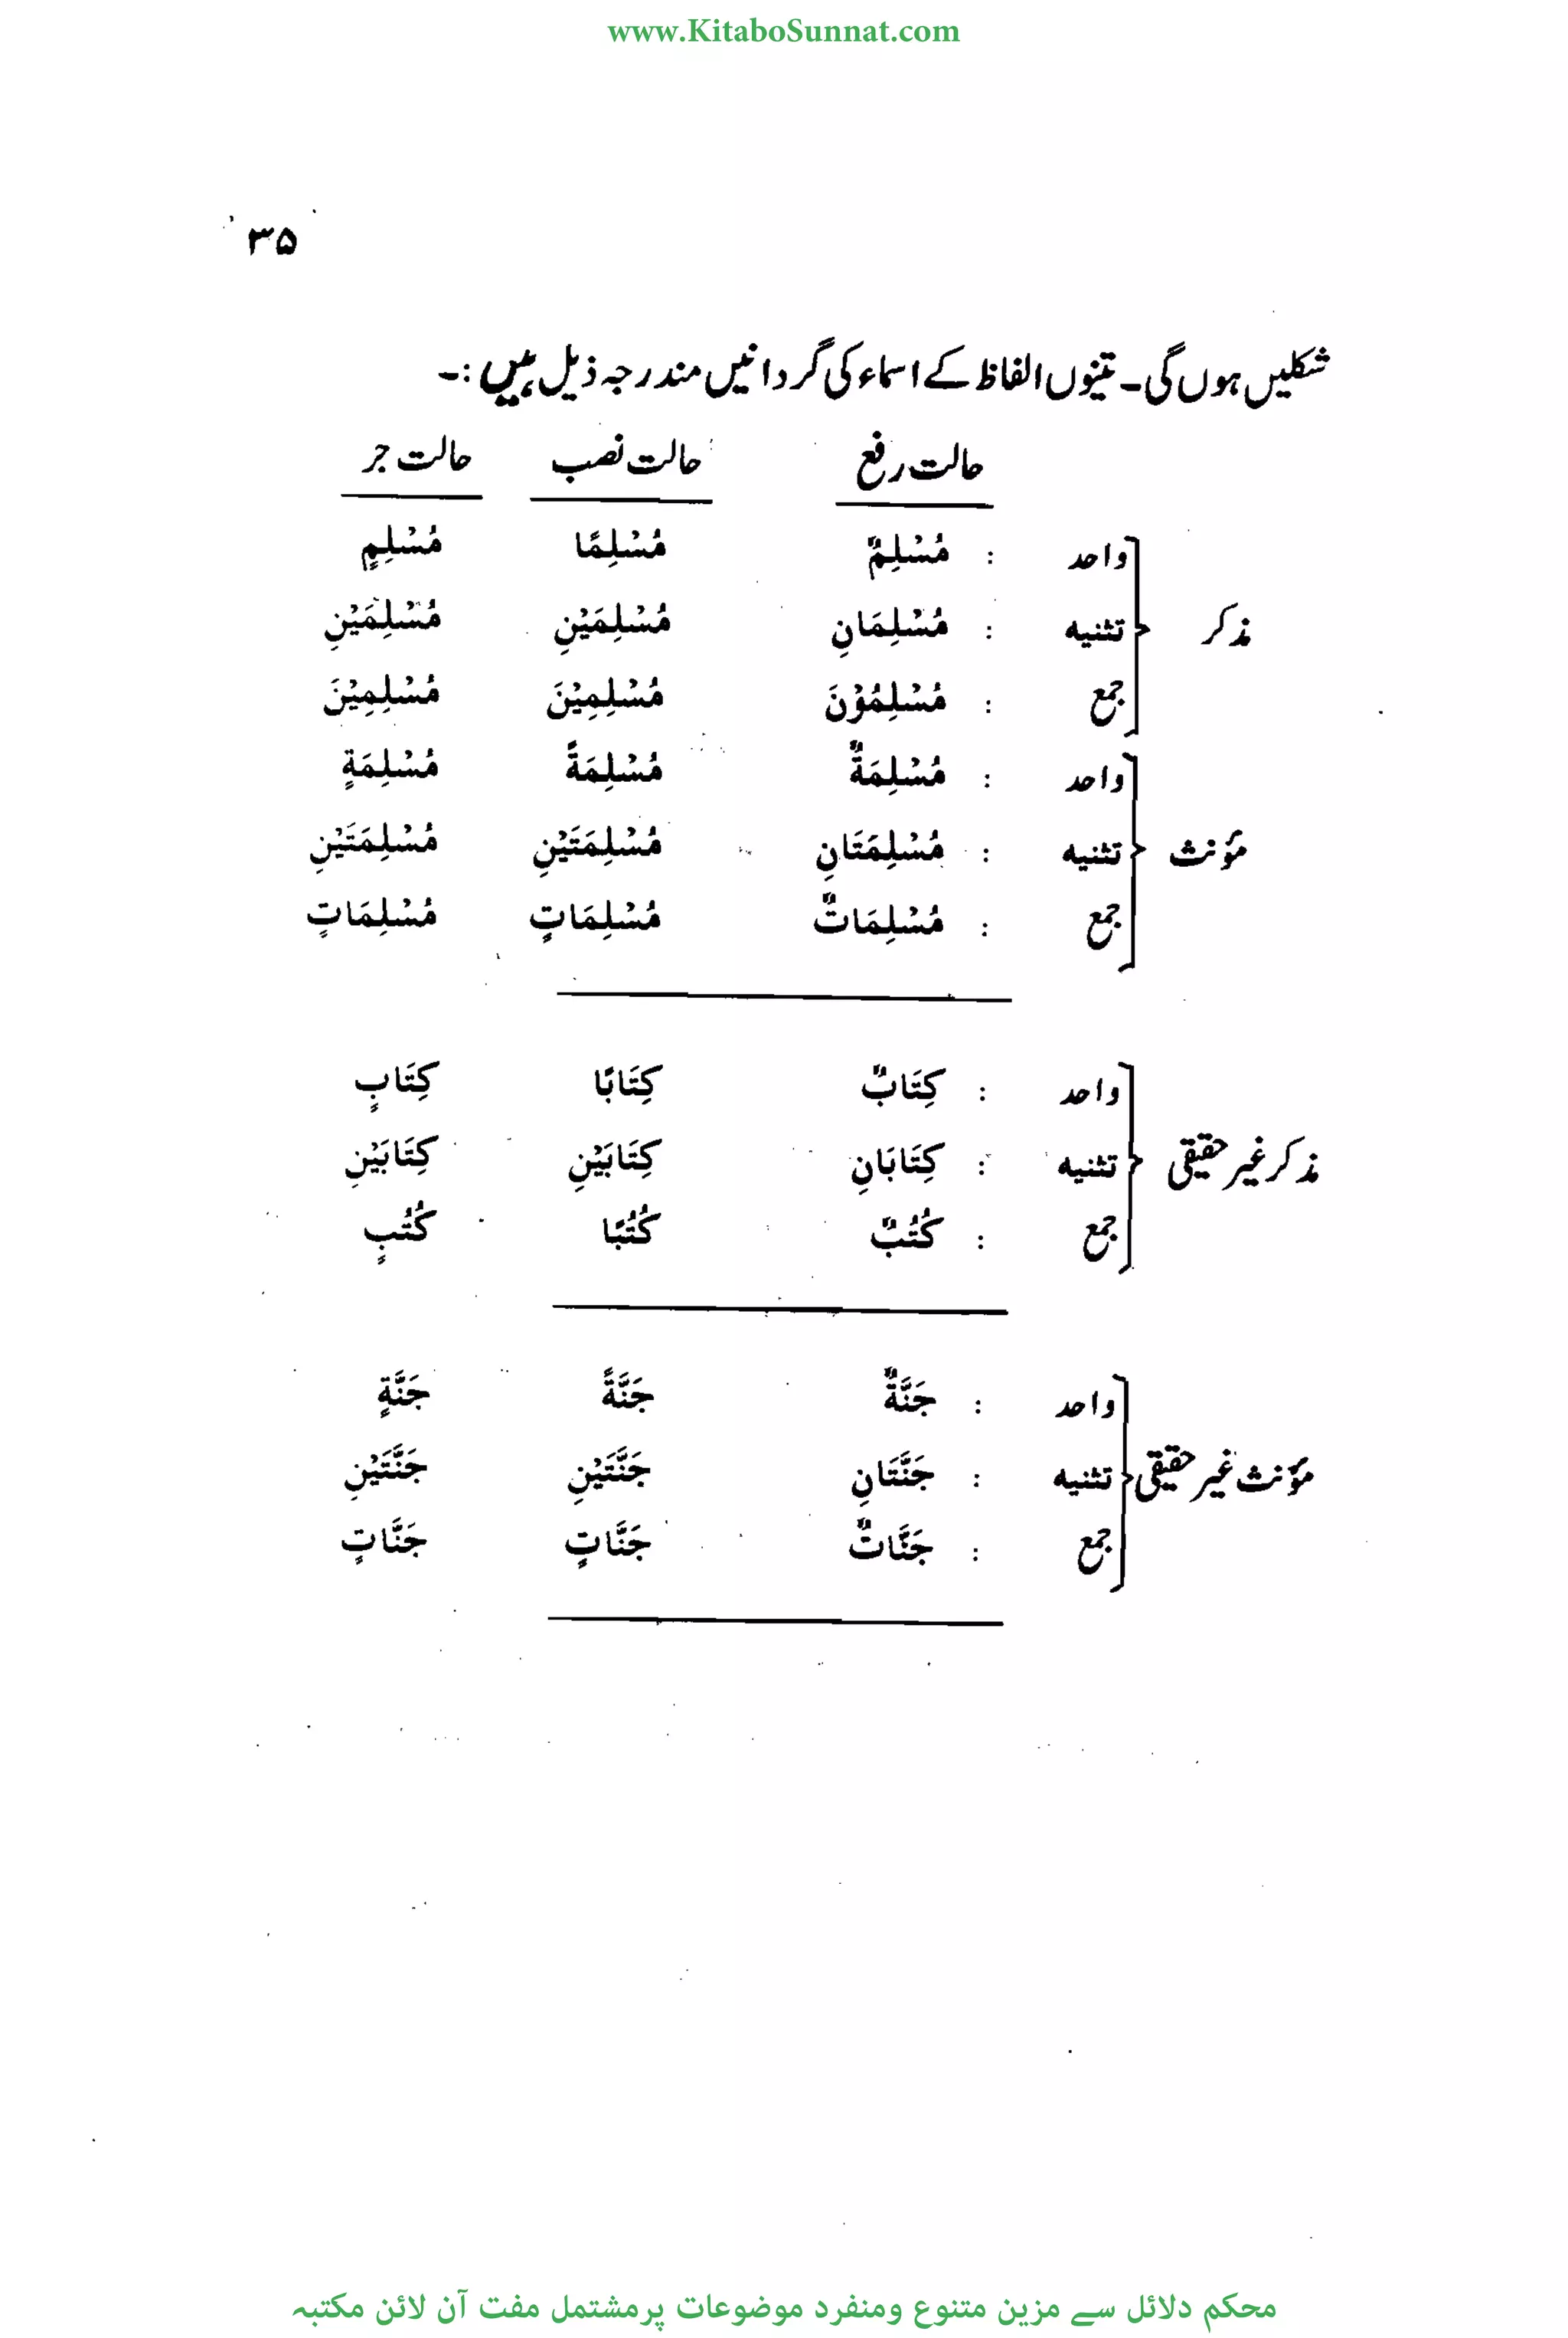 www.KitaboSunnat.com
۳۵
شکلیں ہوں گی۔ تینوں الفاظ کے اسماء کی گردانیں مندرجہ ذیل ہیں :۔
حالت رفع حالت نصب حالت جر
واحد : مُسْلِمٌ مُسْلِمًا مُسْلِمٍ
مذکر تثنیہ : مُسْلِمَانِ مُسْلِمَيْنِ مُسْلِمَيْنِ
جمع : مُسْلِمُوْنَ مُسْلِمِيْنَ مُسْلِمِيْنَ
واحد : مُسْلِمَةٌ مُسْلِمَةً مُسْلِمَةٍ
مؤنث تثنیہ : مُسْلِمَتَانِ مُسْلِمَتَيْنِ مُسْلِمَتَيْنِ
جمع : مُسْلِمَاتٌ مُسْلِمَاتٍ مُسْلِمَاتٍ
واحد : كِتَابٌ كِتَابًا كِتَابٍ
مذکر غیر حقیقی تثنیہ : كِتَابَانِ كِتَابَيْنِ كِتَابَيْنِ
جمع : كُتُبٌ كُتُبًا كُتُبٍ
واحد : جَنَّةٌ جَنَّةً جَنَّةٍ
مؤنث غیر حقیقی تثنیہ : جَنَّتَانِ جَنَّتَيْنِ جَنَّتَيْنِ
جمع : جَنَّاتٌ جَنَّاتٍ جَنَّاتٍ
محکم دلائل سے مزین متنوع ومنفرد موضوعات پر مشتمل مفت آن لائن مکتبہ